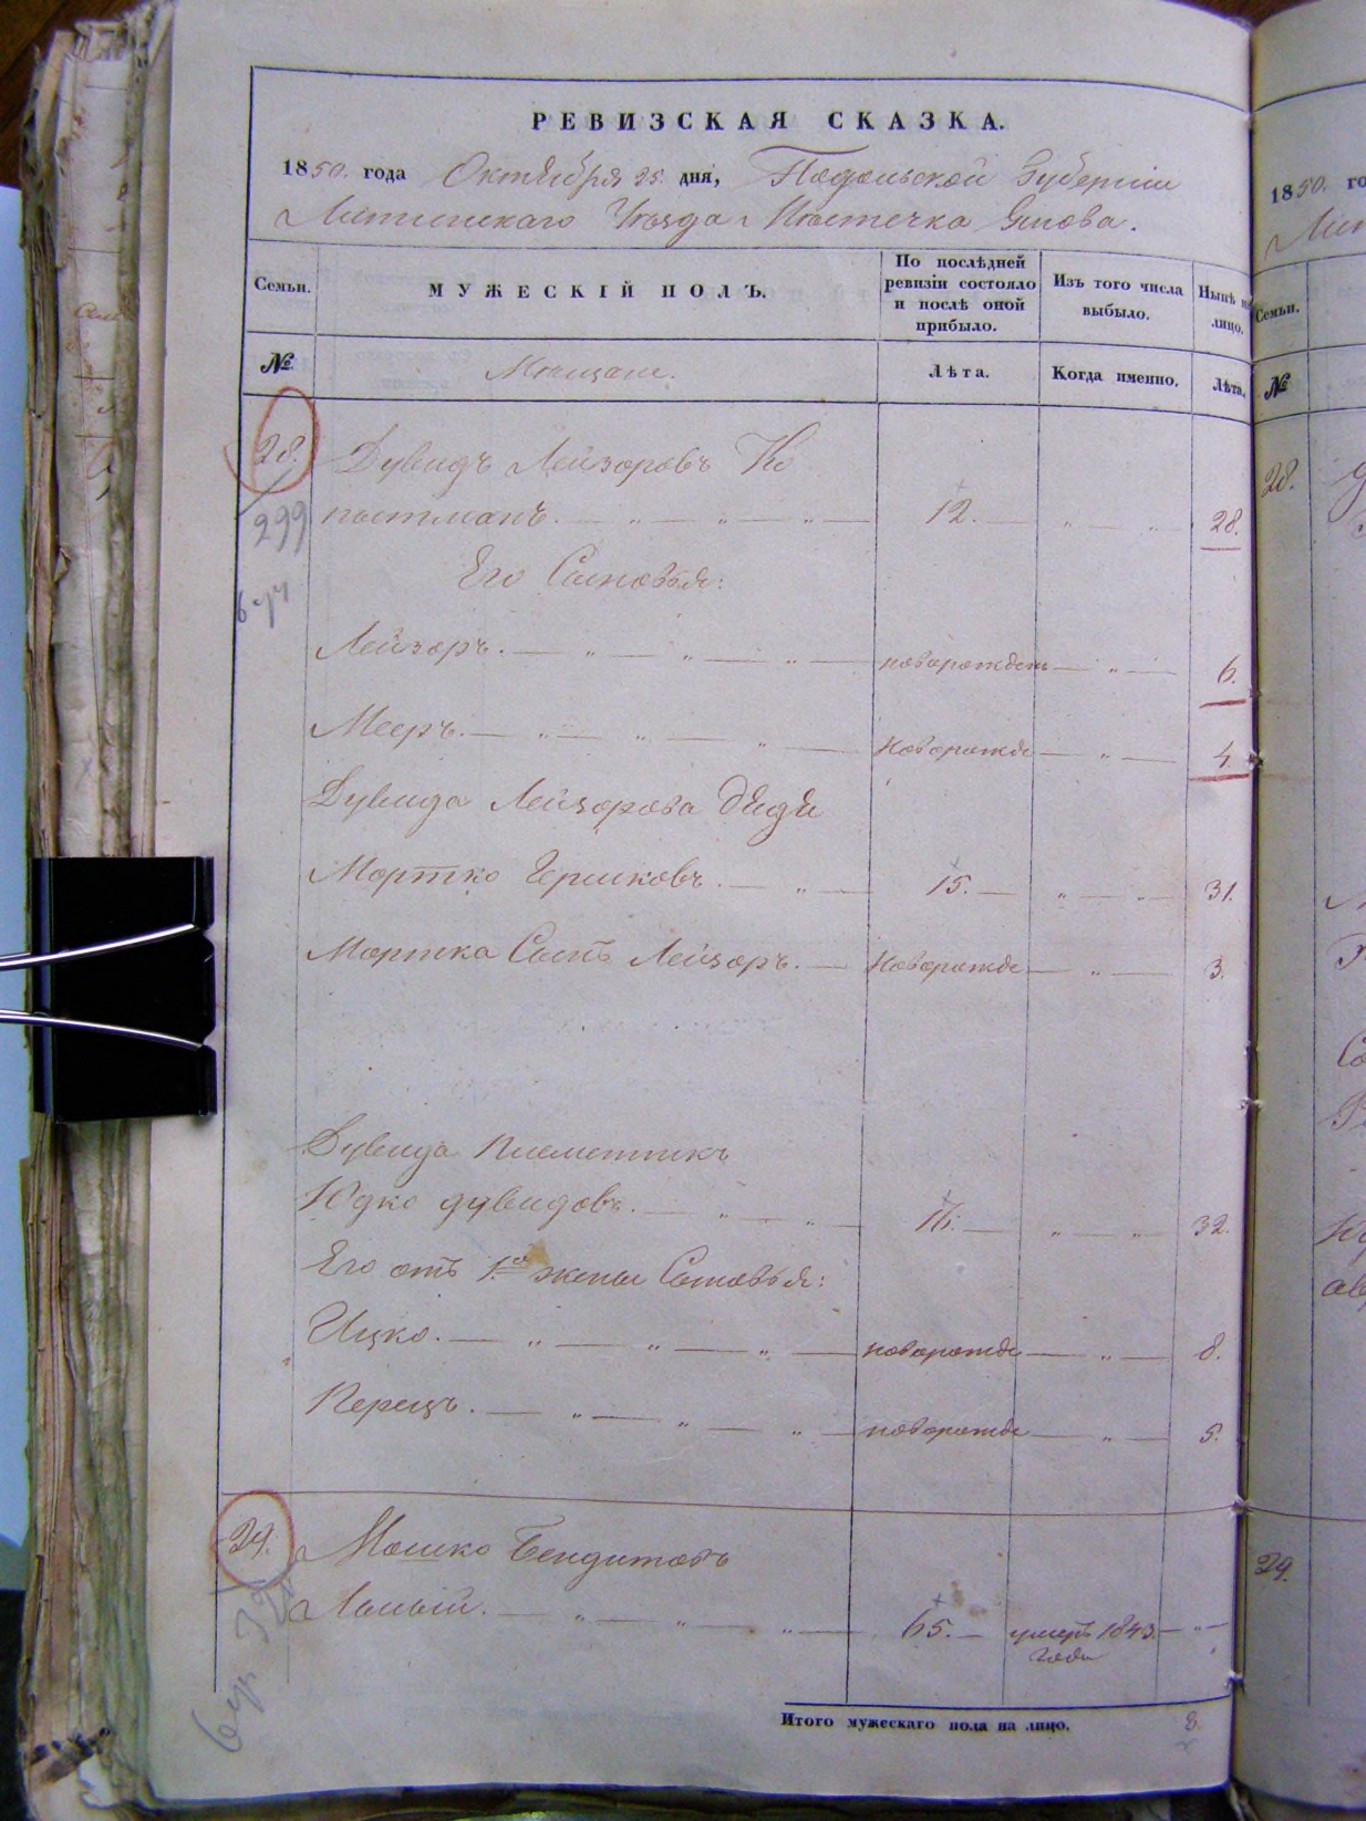 РЕВИЗСКАЯ СКАЗКА.
1850. года Октября 25. дня, Подольской Губерніи
Литинскаго Уѣзда Мѣстечка Янова.
Семьи.
МУЖЕСКІЙ ПОЛЪ.
По послѣдней ревизіи состояло и послѣ оной прибыло.
Изъ того числа выбыло.
Нынѣ на лицо.
№
Мѣщане.
Лѣта.
Когда именно.
Лѣта.
28. Дувидъ Лейзоровъ Ко
299 12. 28.
Его Сыновья:
Лейзоръ. новорожденъ 6.
Мееръ. новорожде 4.
Дувида Лейзорова дядя
Мортко Гершковъ. 15. 31.
Мортка Сынъ Лейзоръ. Новорожде 3.
Дувида Племянникъ
Юдко дувидовъ. 16. 32.
Его отъ 1й жены Сыновья:
Ицко. новорожде 8.
Перецъ. новорожде 5.
29. Мошко Бендитовъ
65. умеръ 1843. года
Итого мужескаго пола на лицо. 8.
1850. го
Семьи.
№
28.
29.